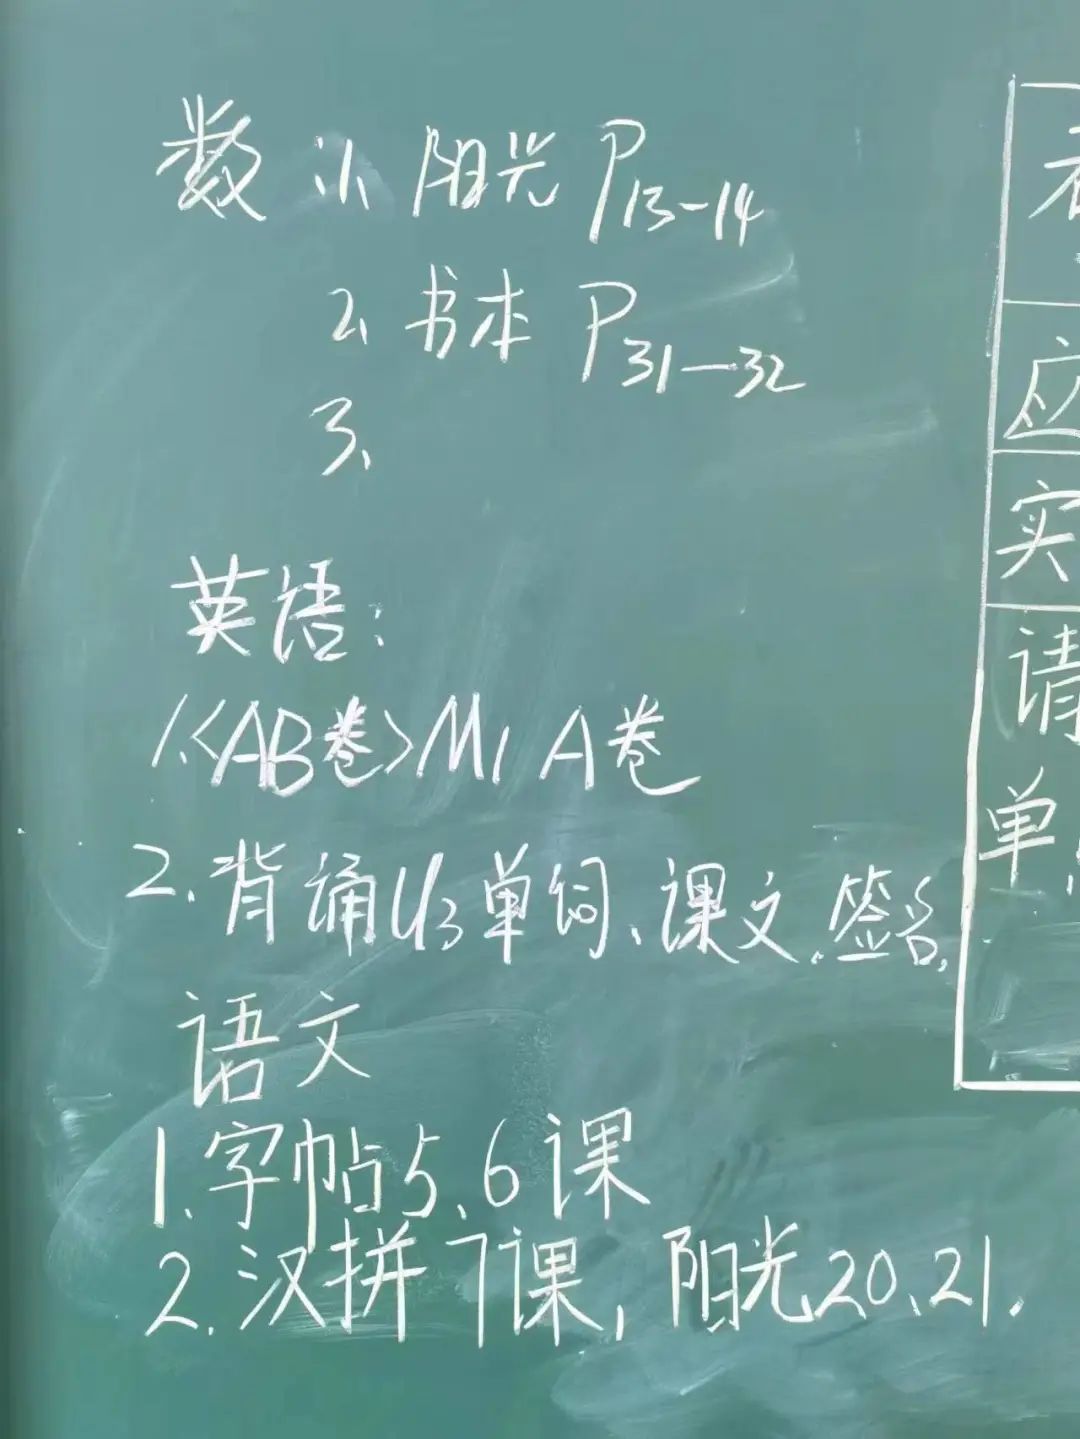 数：1、阳光P13-14
2、书本 P31—32
3、
英语：
1.<AB卷>M1 A卷
2.背诵U3单词、课文.签名.
语文
1.字帖5、6课
2.汉拼7课,阳光20、21.
应
实
请
单